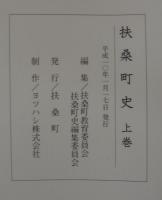 扶桑町史 上巻
平成一〇年一月一七日 発行
編集／扶桑町教育委員会
扶桑町史編集委員会
発行／扶桑町
制作／ヨツハシ株式会社